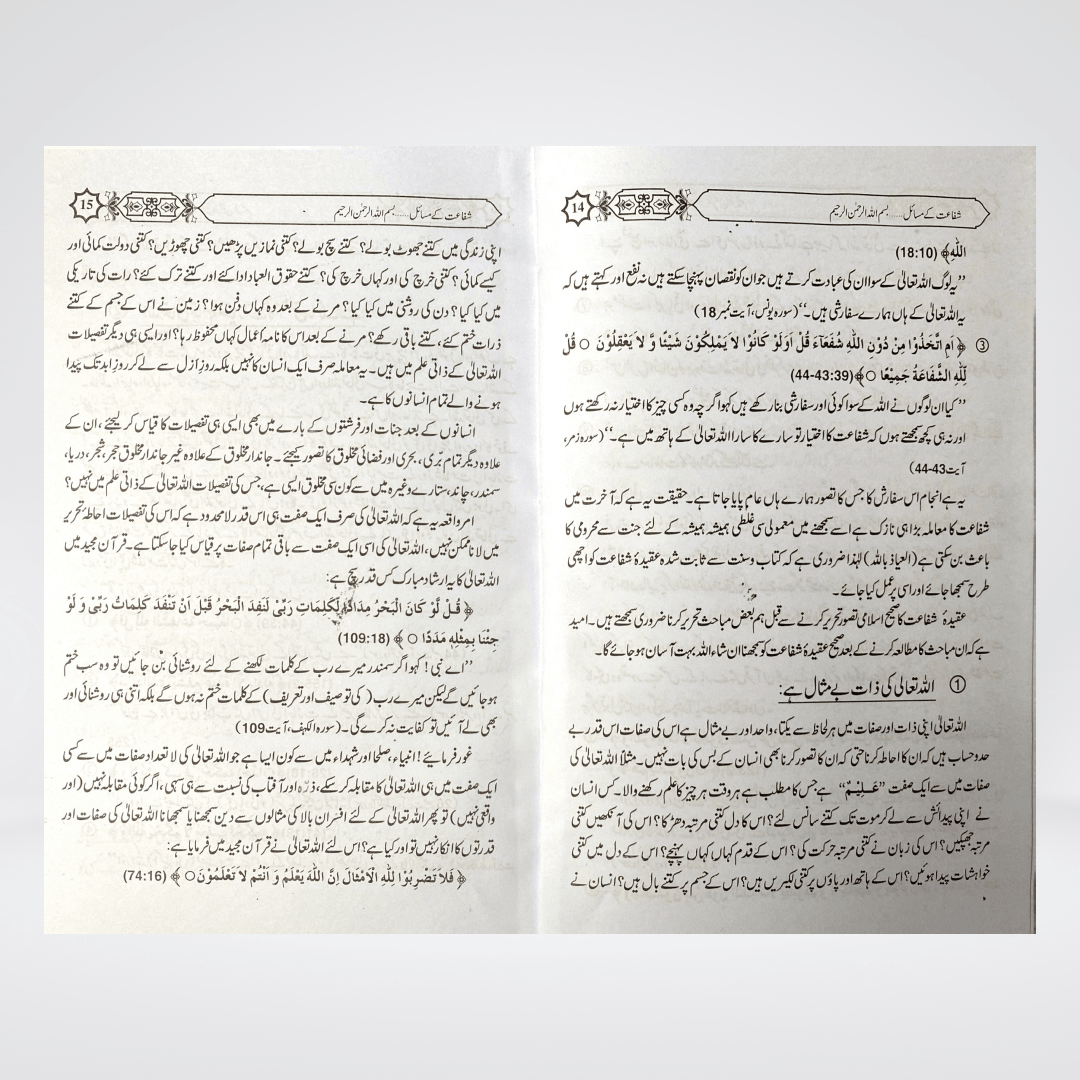 14
شفاعت کے مسائل ..... بسم اللہ الرحمٰن الرحیم
اللّٰہِ﴾ (18:10)
’’یہ لوگ اللہ تعالیٰ کے سوا ان کی عبادت کرتے ہیں جو ان کو نقصان پہنچا سکتے ہیں نہ نفع اور کہتے ہیں کہ
یہ اللہ تعالیٰ کے ہاں ہمارے سفارشی ہیں۔‘‘ (سورہ یونس، آیت نمبر 18)
③ ﴿ اَمِ اتَّخَذُوْا مِنْ دُوْنِ اللّٰہِ شُفَعَآءَ قُلْ اَوَلَوْ کَانُوْا لاَ یَمْلِکُوْنَ شَیْئًا وَّ لاَ یَعْقِلُوْنَ ○ قُلْ
لِلّٰہِ الشَّفَاعَۃُ جَمِیْعًا ○﴾ (44-43:39)
’’کیا ان لوگوں نے اللہ کے سوا کوئی اور سفارشی بنا رکھے ہیں کہو اگرچہ وہ کسی چیز کا اختیار نہ رکھتے ہوں
اور نہ ہی کچھ سمجھتے ہوں کہ شفاعت کا اختیار تو سارے کا سارا اللہ تعالیٰ کے ہاتھ میں ہے۔‘‘ (سورہ زمر،
آیت 43-44)
یہ ہے انجام اس سفارش کا جس کا تصور ہمارے ہاں عام پایا جاتا ہے۔ حقیقت یہ ہے کہ آخرت میں
شفاعت کا معاملہ بڑا ہی نازک ہے اسے سمجھنے میں معمولی سی غلطی ہمیشہ ہمیشہ کے لئے جنت سے محرومی کا
باعث بن سکتی ہے (العیاذ باللہ) لہٰذا ضروری ہے کہ کتاب و سنت سے ثابت شدہ عقیدۂ شفاعت کو اچھی
طرح سمجھا جائے اور اسی پر عمل کیا جائے۔
عقیدۂ شفاعت کا صحیح اسلامی تصور تحریر کرنے سے قبل ہم بعض مباحث تحریر کرنا ضروری سمجھتے ہیں۔ امید
ہے کہ ان مباحث کا مطالعہ کرنے کے بعد صحیح عقیدۂ شفاعت کو سمجھنا ان شاء اللہ بہت آسان ہو جائے گا۔
① اللہ تعالیٰ کی ذات بے مثال ہے:
اللہ تعالیٰ اپنی ذات اور صفات میں ہر لحاظ سے یکتا، واحد اور بے مثال ہے اس کی صفات اس قدر بے
حد و حساب ہیں کہ ان کا احاطہ کرنا حتی کہ ان کا تصور کرنا بھی انسان کے بس کی بات نہیں۔ مثلاً اللہ تعالیٰ کی
صفات میں سے ایک صفت ”عَلِیْمٌ“ ہے جس کا مطلب ہے ہر وقت ہر چیز کا علم رکھنے والا۔ کس انسان
نے اپنی پیدائش سے لے کر موت تک کتنے سانس لئے؟ اس کا دل کتنی مرتبہ دھڑکا؟ اس کی آنکھیں کتنی
مرتبہ جھپکیں؟ اس کی زبان نے کتنی مرتبہ حرکت کی؟ اس کے قدم کہاں کہاں پہنچے؟ اس کے دل میں کتنی
خواہشات پیدا ہوئیں؟ اس کے ہاتھ اور پاؤں پر کتنی لکیریں ہیں؟ اس کے جسم پر کتنے بال ہیں؟ انسان نے
15
شفاعت کے مسائل ..... بسم اللہ الرحمٰن الرحیم
اپنی زندگی میں کتنے جھوٹ بولے؟ کتنے سچ بولے؟ کتنی نمازیں پڑھیں؟ کتنی چھوڑیں؟ کتنی دولت کمائی اور
کیسے کمائی؟ کتنی خرچ کی اور کہاں خرچ کی؟ کتنے حقوق العباد ادا کئے اور کتنے ترک کئے؟ رات کی تاریکی
میں کیا کیا؟ دن کی روشنی میں کیا کیا؟ مرنے کے بعد وہ کہاں دفن ہوا؟ زمین نے اس کے جسم کے کتنے
ذرات ختم کئے، کتنے باقی رکھے؟ مرنے کے بعد اس کا نامہ اعمال کہاں محفوظ رہا؟ اور ایسی ہی دیگر تفصیلات
اللہ تعالیٰ کے ذاتی علم میں ہیں۔ یہ معاملہ صرف ایک انسان کا نہیں بلکہ روزِ ازل سے لے کر روزِ ابد تک پیدا
ہونے والے تمام انسانوں کا ہے۔
انسانوں کے بعد جنات اور فرشتوں کے بارے میں بھی ایسی ہی تفصیلات کا قیاس کر لیجئے، ان کے
علاوہ دیگر تمام برّی، بحری اور فضائی مخلوق کا تصور کیجئے۔ جاندار مخلوق کے علاوہ غیر جاندار مخلوق حجر، شجر، دریا،
سمندر، چاند، ستارے وغیرہ میں سے کون سی مخلوق ایسی ہے، جس کی تفصیلات اللہ تعالیٰ کے ذاتی علم میں نہیں؟
امر واقعہ یہ ہے کہ اللہ تعالیٰ کی صرف ایک صفت ہی اس قدر لامحدود ہے کہ اس کی تفصیلات احاطہ تحریر
میں لانا ممکن نہیں، اللہ تعالیٰ کی اسی ایک صفت سے باقی تمام صفات پر قیاس کیا جا سکتا ہے۔ قرآن مجید میں
اللہ تعالیٰ کا یہ ارشاد مبارک کس قدر سچ ہے:
﴿ قُلْ لَّوْ کَانَ الْبَحْرُ مِدَادًا لِّکَلِمَاتِ رَبِّیْ لَنَفِدَ الْبَحْرُ قَبْلَ اَنْ تَنْفَدَ کَلِمَاتُ رَبِّیْ وَ لَوْ
جِئْنَا بِمِثْلِہٖ مَدَدًا ○ ﴾ (109:18)
’’اے نبی! کہو اگر سمندر میرے رب کے کلمات لکھنے کے لئے روشنائی بن جائیں تو وہ سب ختم
ہو جائیں گے لیکن میرے رب (کی توصیف اور تعریف) کے کلمات ختم نہ ہوں گے بلکہ اتنی ہی روشنائی اور
بھی لے آئیں تو کفایت نہ کرے گی۔ (سورہ الکہف، آیت 109)
غور فرمائیے! انبیاء، صلحا اور شہداء میں سے کون ایسا ہے جو اللہ تعالیٰ کی لاتعداد صفات میں سے کسی
ایک صفت میں ہی اللہ تعالیٰ کا مقابلہ کر سکے، ذرّہ اور آفتاب کی نسبت سے ہی سہی، اگر کوئی مقابلہ نہیں (اور
واقعی نہیں) تو پھر اللہ تعالیٰ کے لئے افسران بالا کی مثالوں سے دین سمجھنا یا سمجھانا اللہ تعالیٰ کی صفات اور
قدرتوں کا انکار نہیں تو اور کیا ہے؟ اس لئے اللہ تعالیٰ نے قرآن مجید میں فرمایا ہے:
﴿ فَلاَ تَضْرِبُوْا لِلّٰہِ الْاَمْثَالَ اِنَّ اللّٰہَ یَعْلَمُ وَ اَنْتُمْ لاَ تَعْلَمُوْنَ ○ ﴾ (74:16)